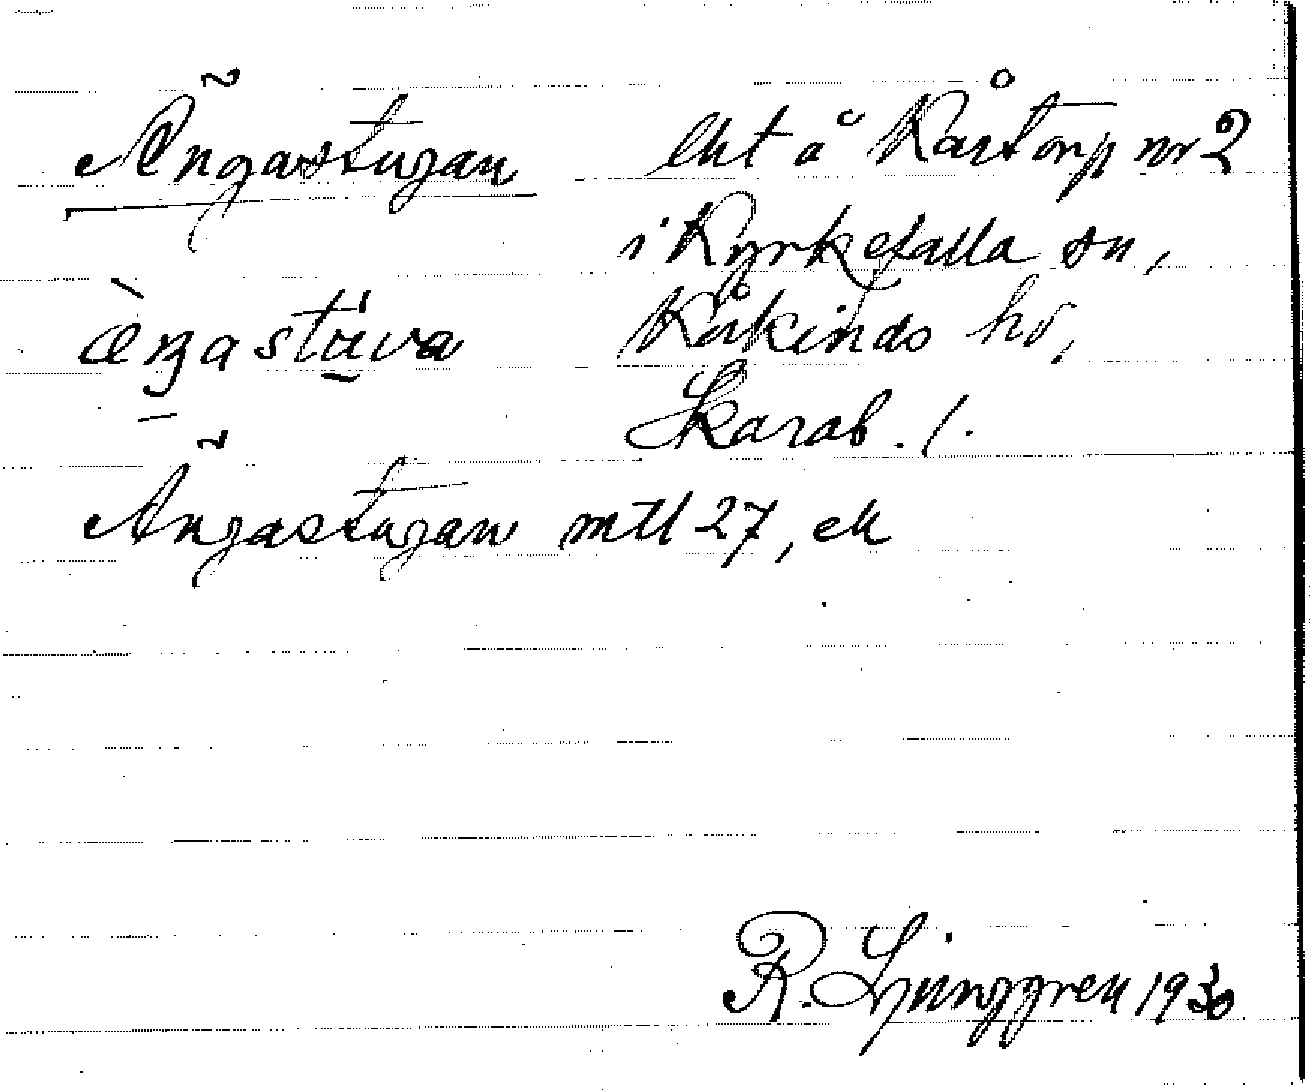 Ängastugan lht å Kåstorp nr 2
i Kyrkefalla sn,
æ̀ŋastu̇va Kåkinds hd,
Skarab. l.
Ängastugan mtl 27, ek
R. Ljunggren 1930